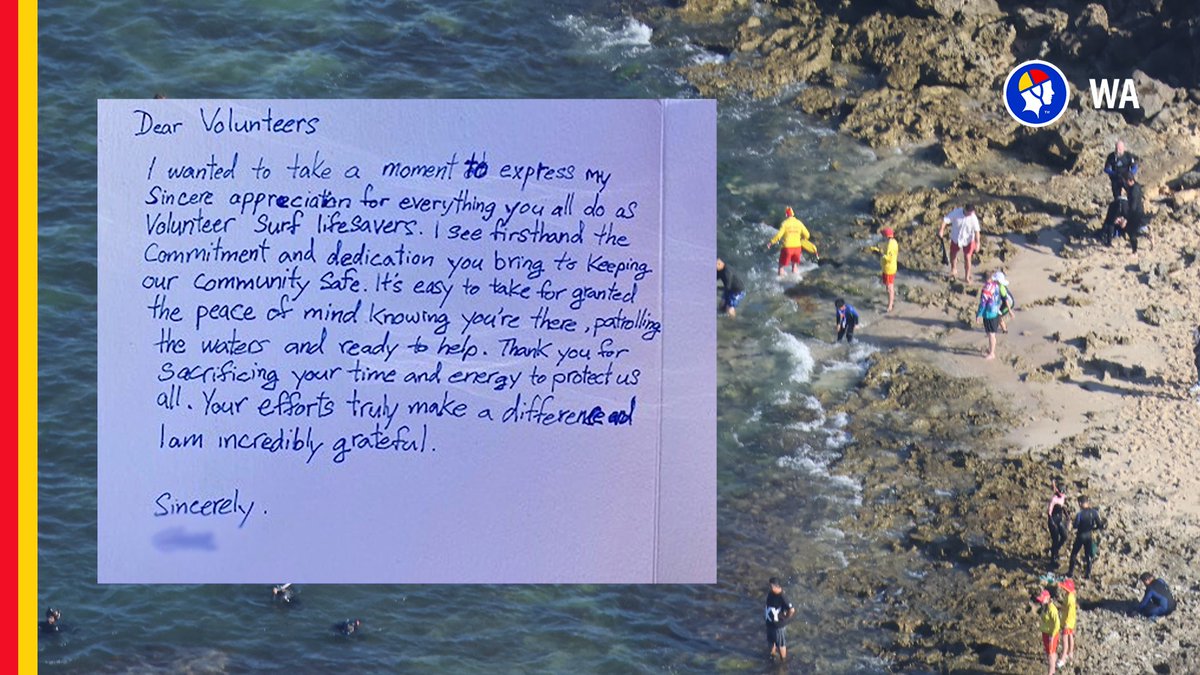 WA
Dear Volunteers
I wanted to take a moment to express my
Sincere appreciation for everything you all do as
Volunteer Surf lifesavers. I see firsthand the
Commitment and dedication you bring to Keeping
our Community Safe. It's easy to take for granted
the peace of mind knowing you're there, patrolling
the waters and ready to help. Thank you for
Sacrificing your time and energy to protect us
all. Your efforts truly make a difference and
I am incredibly grateful.
Sincerely.